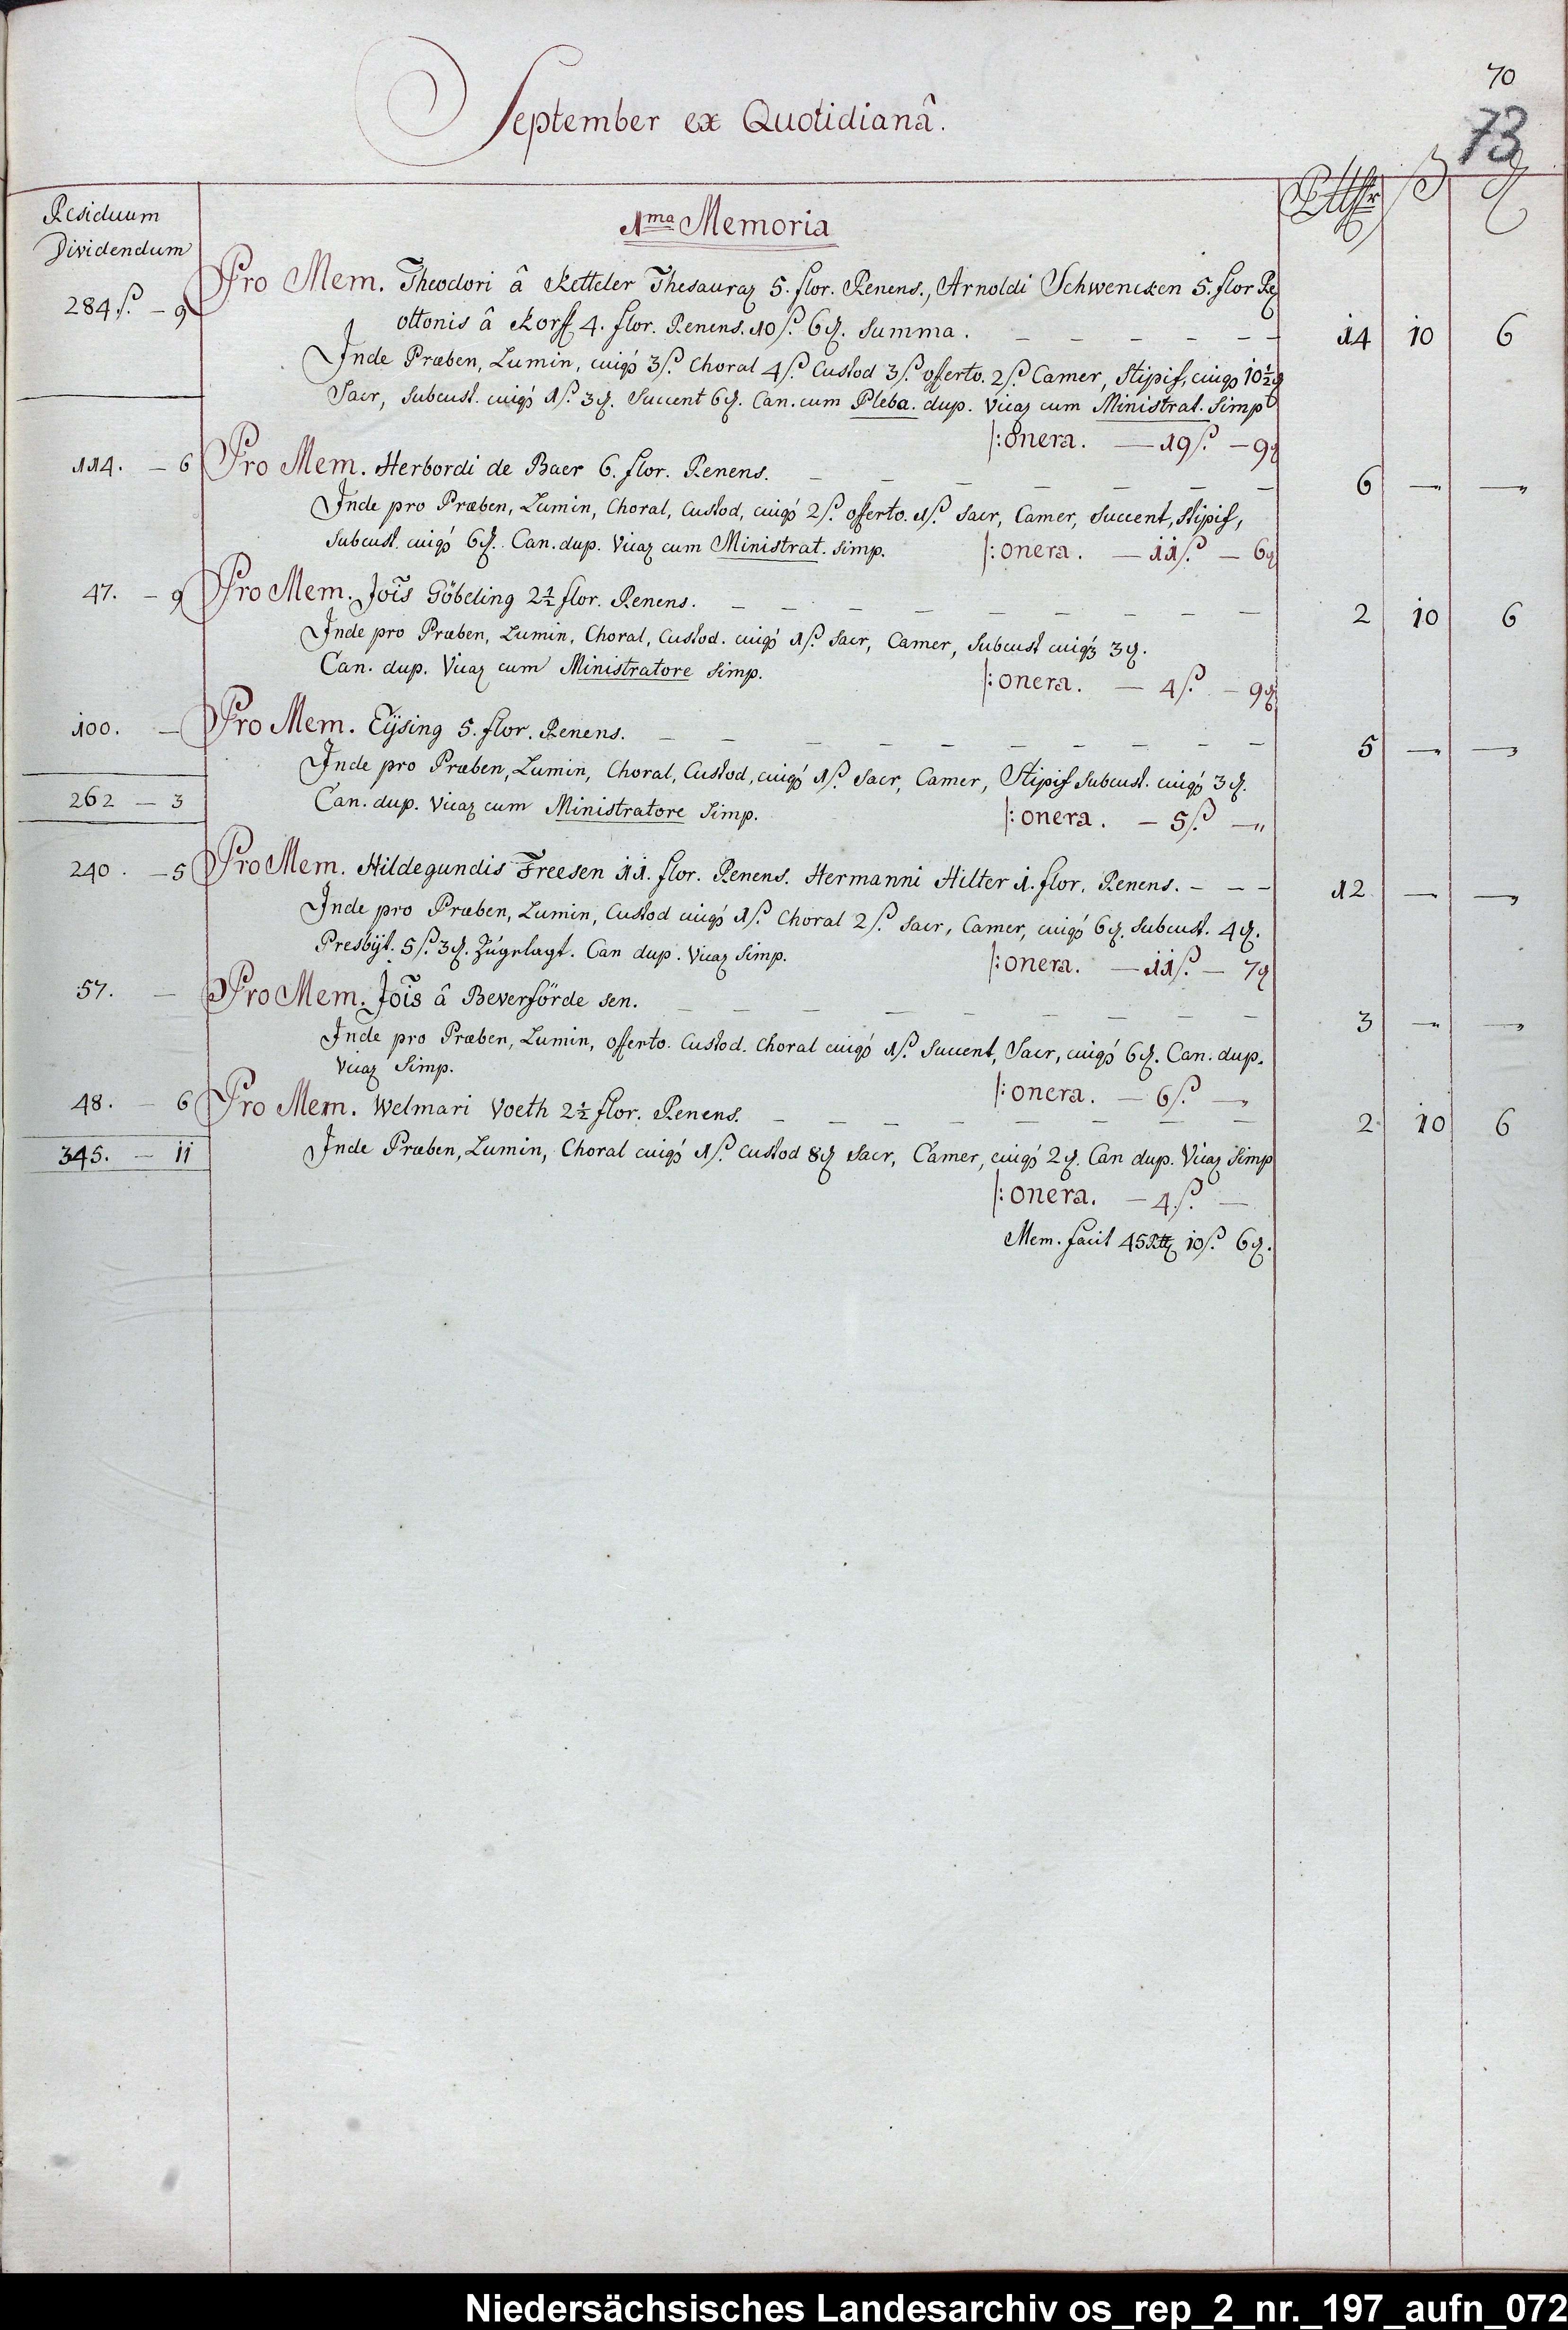 70
73
September ex Quotidianâ.
Residuum
Dividendum
1ma Memoria
Rthlr ß ₰
284 ß. - 9 Pro Mem. Theodori â Ketteler Thesaurar 5. flor. Renens., Arnoldi Schwencken 5. flor Re
ottonis â Korff 4. flor. Renens. 10 ß. 6 ₰. Summa. 14 10 6
Inde Præben, Lumin, cuiq3 3 ß. Choral 4 ß. Custod 3 ß. offerto. 2 ß. Camer, Stipif, cuiq3 10½ ₰
Sacr, Subcust. cuiq3 1 ß. 3 ₰. Succent 6 ₰. Can. cum Pleba. dup. Vicar cum Ministrat. Simp
/: onera. — 19 ß — 9 ₰
114. - 6 Pro Mem. Herbordi de Baer 6. flor. Renens. 6 — —
Inde pro Præben, Lumin, Choral, Custod, cuiq3 2 ß. offerto. 1 ß. Sacr, Camer, Succent, Stipif,
Subcust. cuiq3 6 ₰. Can. dup. Vicar cum Ministrat. Simp. /: onera. — 11 ß. — 6 ₰
47. - 9 Pro Mem. Jois Göbeling 2½ flor. Renens. 2 10 6
Inde pro Præben, Lumin, Choral, Custod. cuiq3 1 ß. Sacr, Camer, Subcust cuiq3 3 ₰.
Can. dup. Vicar cum Ministratore Simp. /: onera. — 4 ß. — 9 ₰
100. — Pro Mem. Eijsing 5. flor. Renens. 5 — —
Inde pro Præben, Lumin, Choral, Custod, cuiq3 1 ß. Sacr, Camer, Stipif Subcust. cuiq3 3 ₰.
262 - 3 Can. dup. Vicar cum Ministratore Simp. /: onera. — 5 ß. — „
240. - 5 Pro Mem. Hildegundis Freesen 11. flor. Renens. Hermanni Hilter 1. flor. Renens. 12 — —
Inde pro Præben, Lumin, Custod cuiq3 1 ß. Choral 2 ß. Sacr, Camer, cuiq3 6 ₰. Subcust. 4 ₰.
Presbijt. 5 ß. 3 ₰. Zugelagt. Can dup. Vicar Simp. /: onera. — 11 ß. — 7 ₰
57. — Pro Mem. Jois â Beverförde sen. 3 — —
Inde pro Præben, Lumin, offerto. Custod. Choral cuiq3 1 ß. Succent, Sacr, cuiq3 6 ₰. Can. dup.
Vicar Simp.
/: onera. — 6 ß. —
48. - 6 Pro Mem. Welmari Voeth 2½ flor. Renens. 2 10 6
345. - 11 Inde Præben, Lumin, Choral cuiq3 1 ß. Custod 8 ₰ Sacr, Camer, cuiq3 2 ₰. Can dup. Vicar Simp
/: onera. — 4 ß. —
Mem. facit 45 Rthlr 10 ß. 6 ₰.
Niedersächsisches Landesarchiv os_rep_2_nr._197_aufn_072